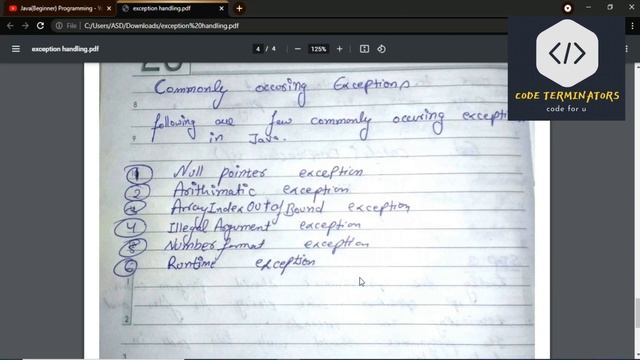 Java(Beginner) Programming - Yo
exception handling.pdf
File
C:/Users/ASD/Downloads/exception%20handling.pdf
exception handling.pdf
4 / 4
125%
CODE TERMINATORS
code for u
Commonly occuring Exceptions
following are few commonly occuring exception
in Java.
1 Null pointer exception
2 Arithimatic exception
3 Array Index Out of Bound exception
4 Illegal Argument exception
5 Number format exception
6 Runtime exception
8
9
1
2